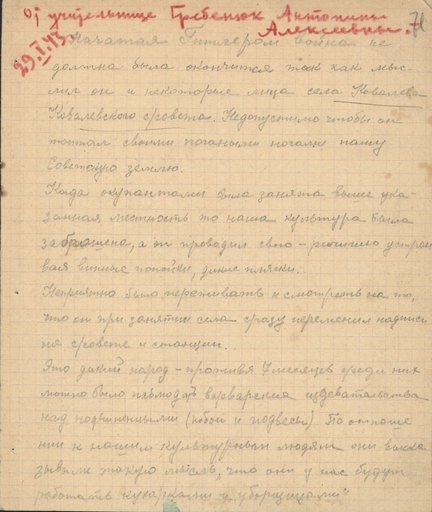 От учительнице Гребенюк Антонины
Алексеевны.
71
29.I.43
Начатая Гитлером война не
должна была окончится так как мыс-
лил он и некоторые лица села Ковалева
Ковалевского с/совета. Недопустимо чтобы он
топтал своими погаными ногами нашу
Советскую землю.
Когда окупантами была занята выше ука-
занная местность то наша культура была
заброшена, а он проводил свою - устраи
вая пьянки попойки, дикие пляски.
Неприятно было переживать и смотреть на то,
что он при занятии села сразу переменил надписи
на с/совете и станции.
Это дикий народ - проживя 7 месяцев среди них
можно было наблюдать варварския издевательства
над подчиненными (побои и подвесы). По отноше
нии к нашим культурным людям они выска
зывали такую мысль, что они у нас будут
работать кухарками и уборщицами"